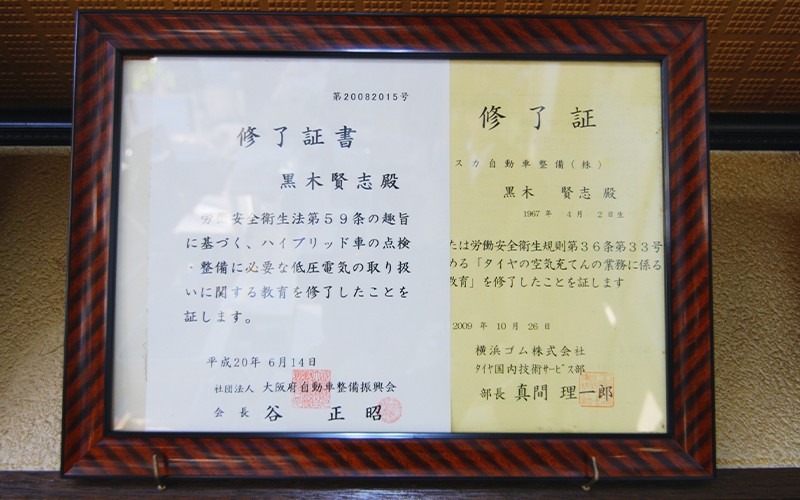 第20082015号
修了証書
黒木賢志殿
労働安全衛生法第59条の趣旨
に基づく、ハイブリッド車の点検
・整備に必要な低圧電気の取り扱
いに関する教育を修了したことを
証します。
平成20年 6月14日
社団法人 大阪府自動車整備振興会
会 長 谷 正 昭
修了証
スカ自動車整備(株)
黒木 賢志殿
1967 年 4 月 2日生
たは労働安全衛生規則第36条第33号
める「タイヤの空気充てんの業務に係る
教育」を修了したことを証します
2009 年 10 月 26 日
横浜ゴム株式会社
タイヤ国内技術サービス部
部長 真間 理一郎